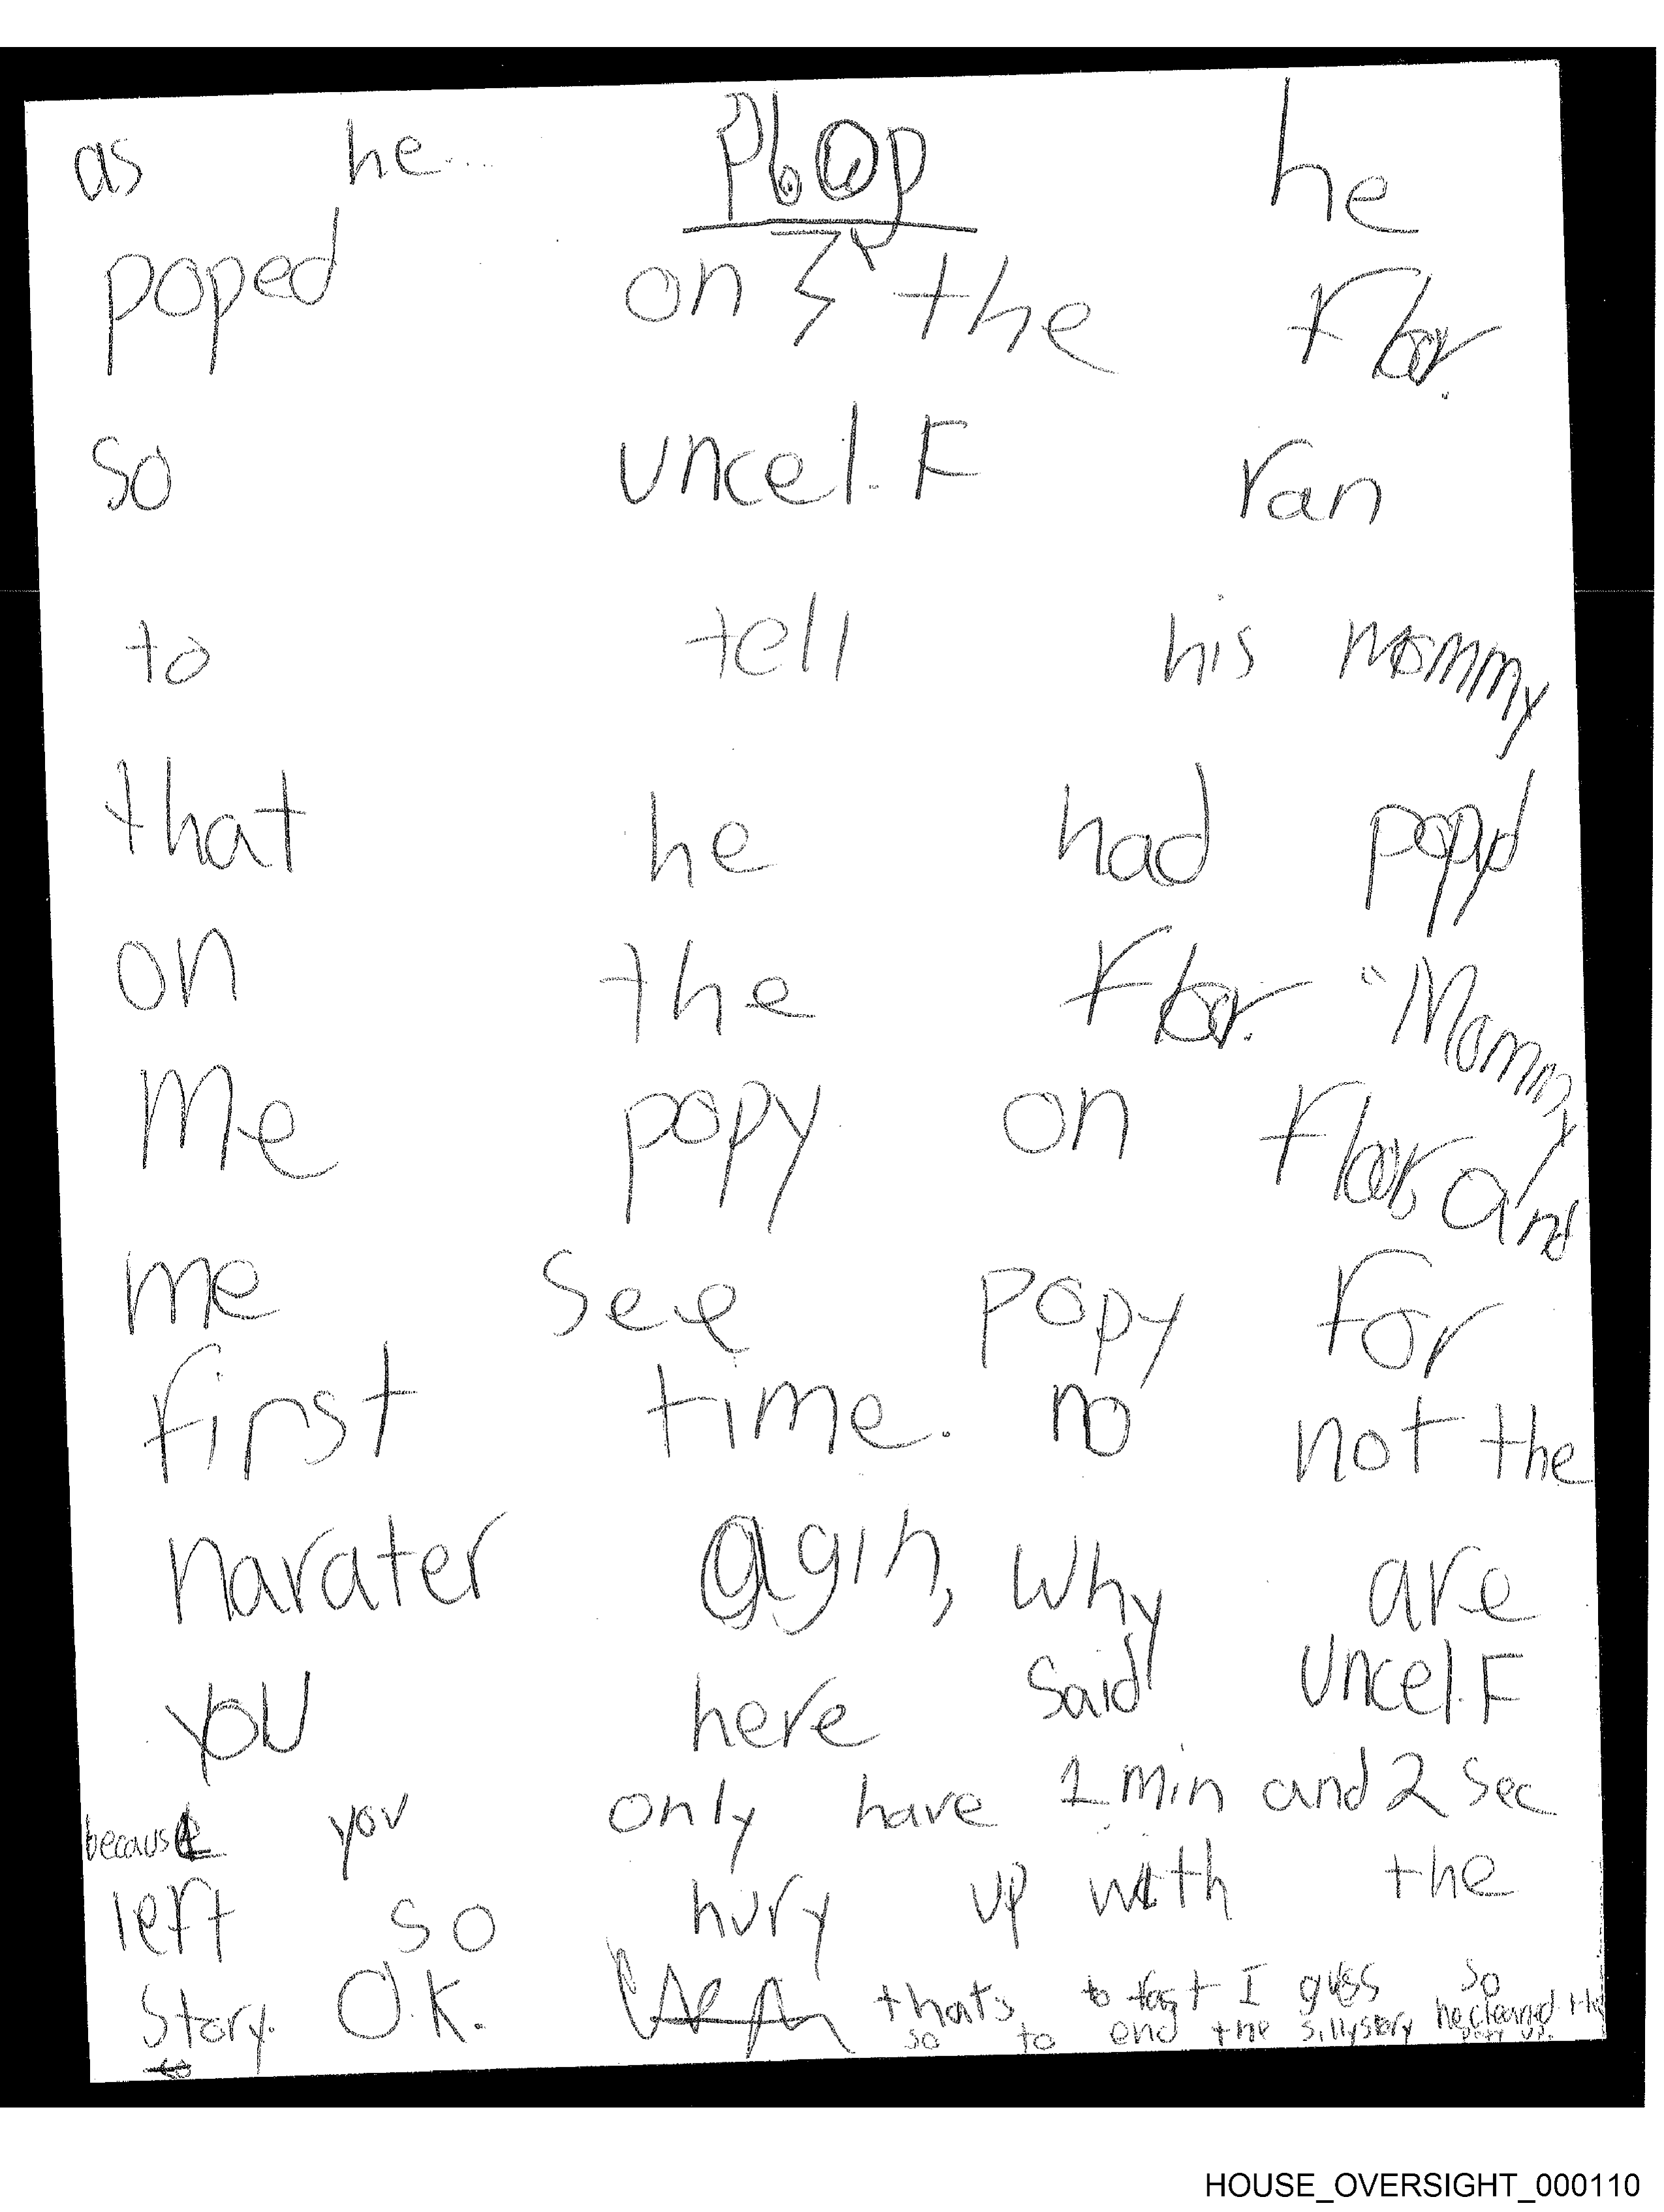 as he... Plop he
poped on the floor.
so uncel.F ran
to tell his mommy
that he had popd
on the floor. "Mommy
Me popy on floor, and
me see popy for
first time. no not the
narater agin, why are
you here said uncel.F
because you only have 1 min and 2 sec
left so hury up with the
story. O.K. thats to fast I guss so
so to end the sillystory he cleand the
popy up.
HOUSE_OVERSIGHT_000110